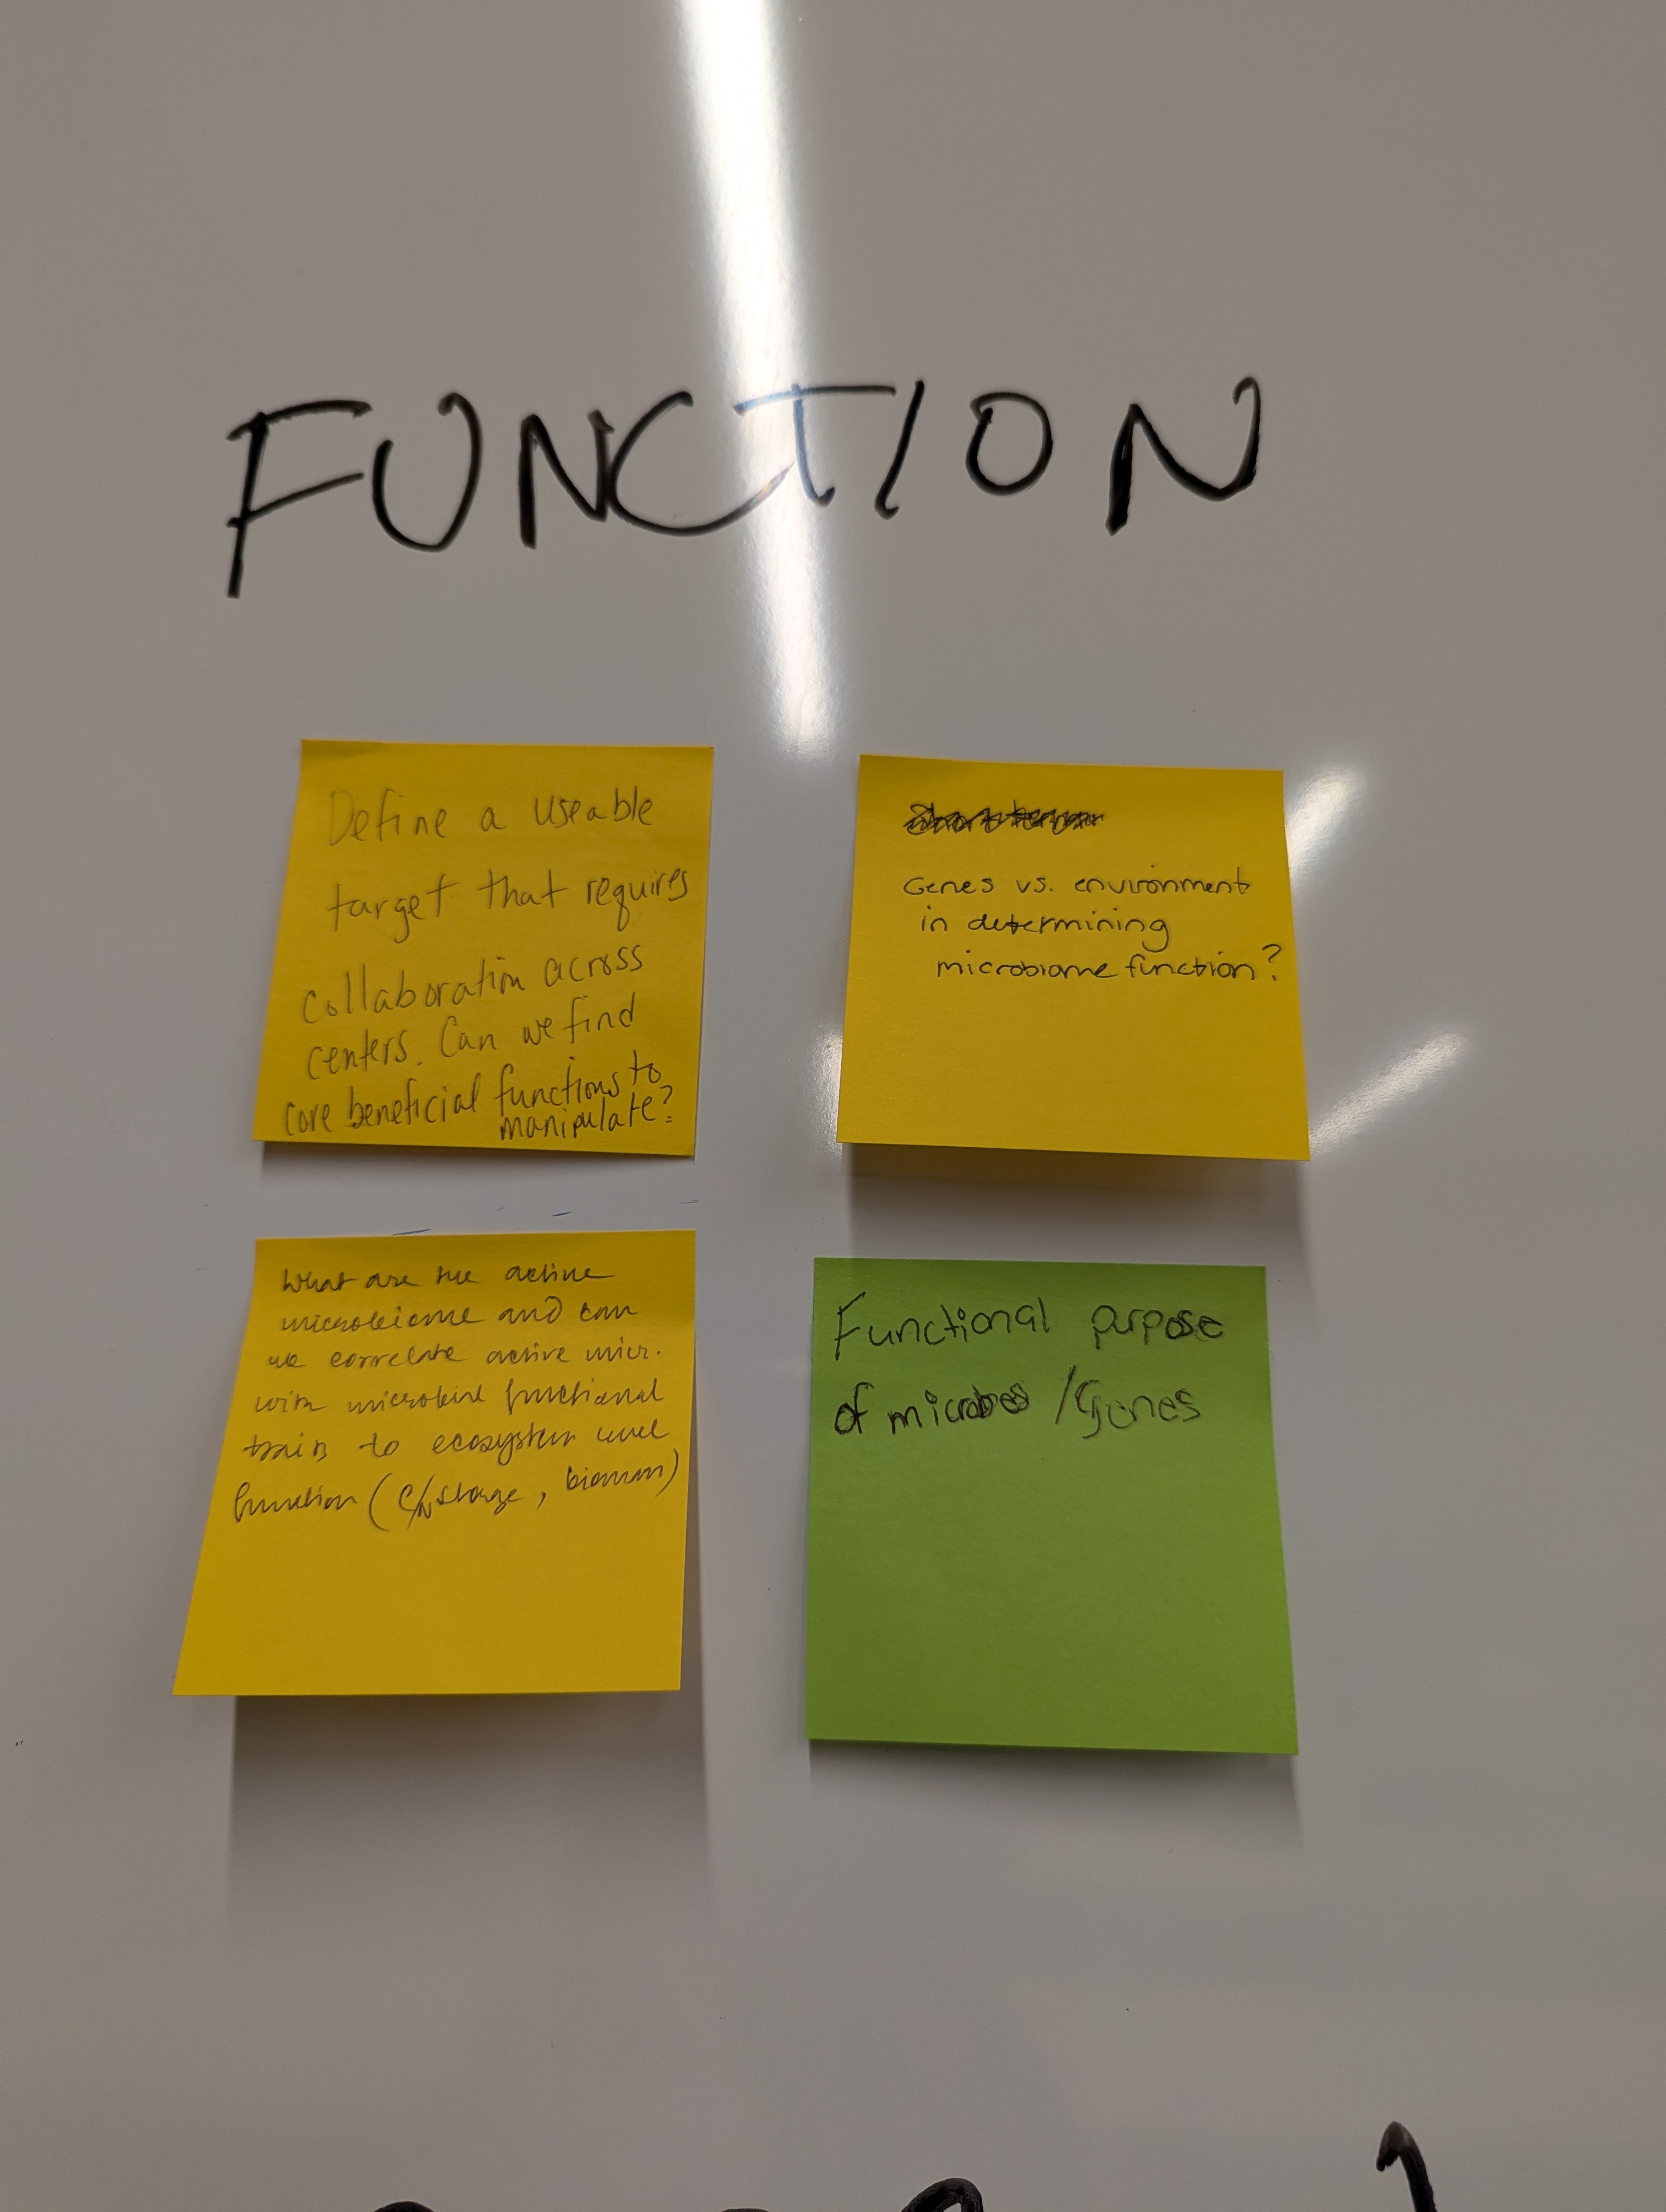 FUNCTION
Define a useable
target that requires
collaboration across
centers. Can we find
core beneficial functions to
manipulate?
Genes vs. environment
in determining
microbiome function?
What are the active
microbiome and can
we correlate active micr.
with microbial functional
traits to ecosystem level
function (C/N storage, biomass)
Functional purpose
of microbes / Genes